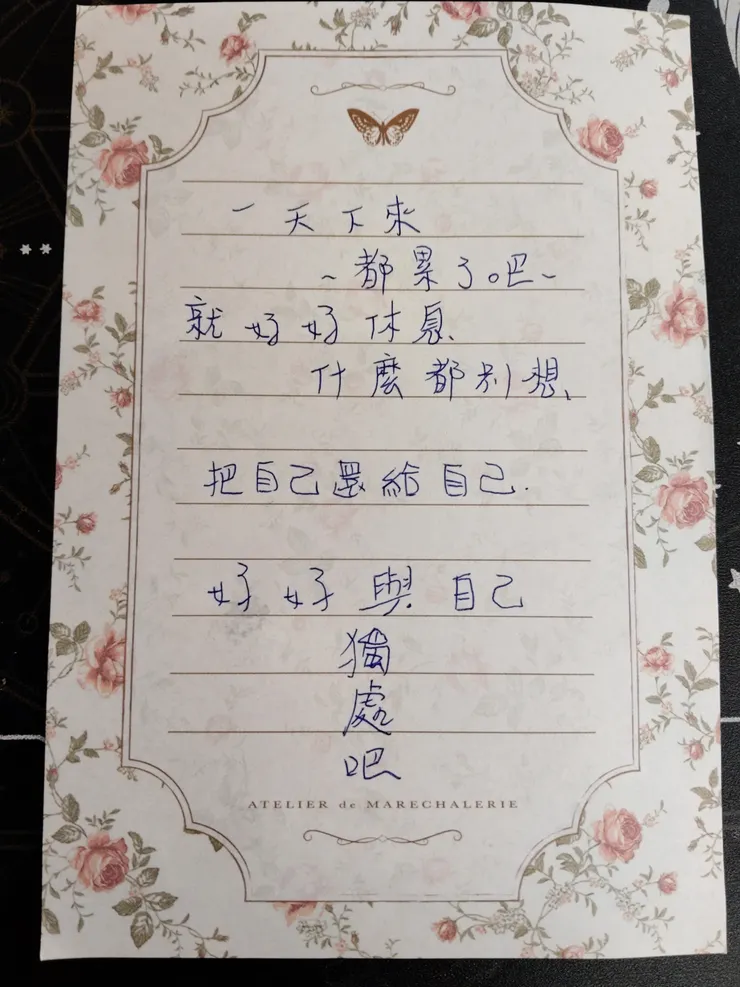 一天下來
~都累了吧~
就好好休息、
什麼都別想、
把自己還給自己.
好好與自己
獨
處
吧
ATELIER de MARECHALERIE